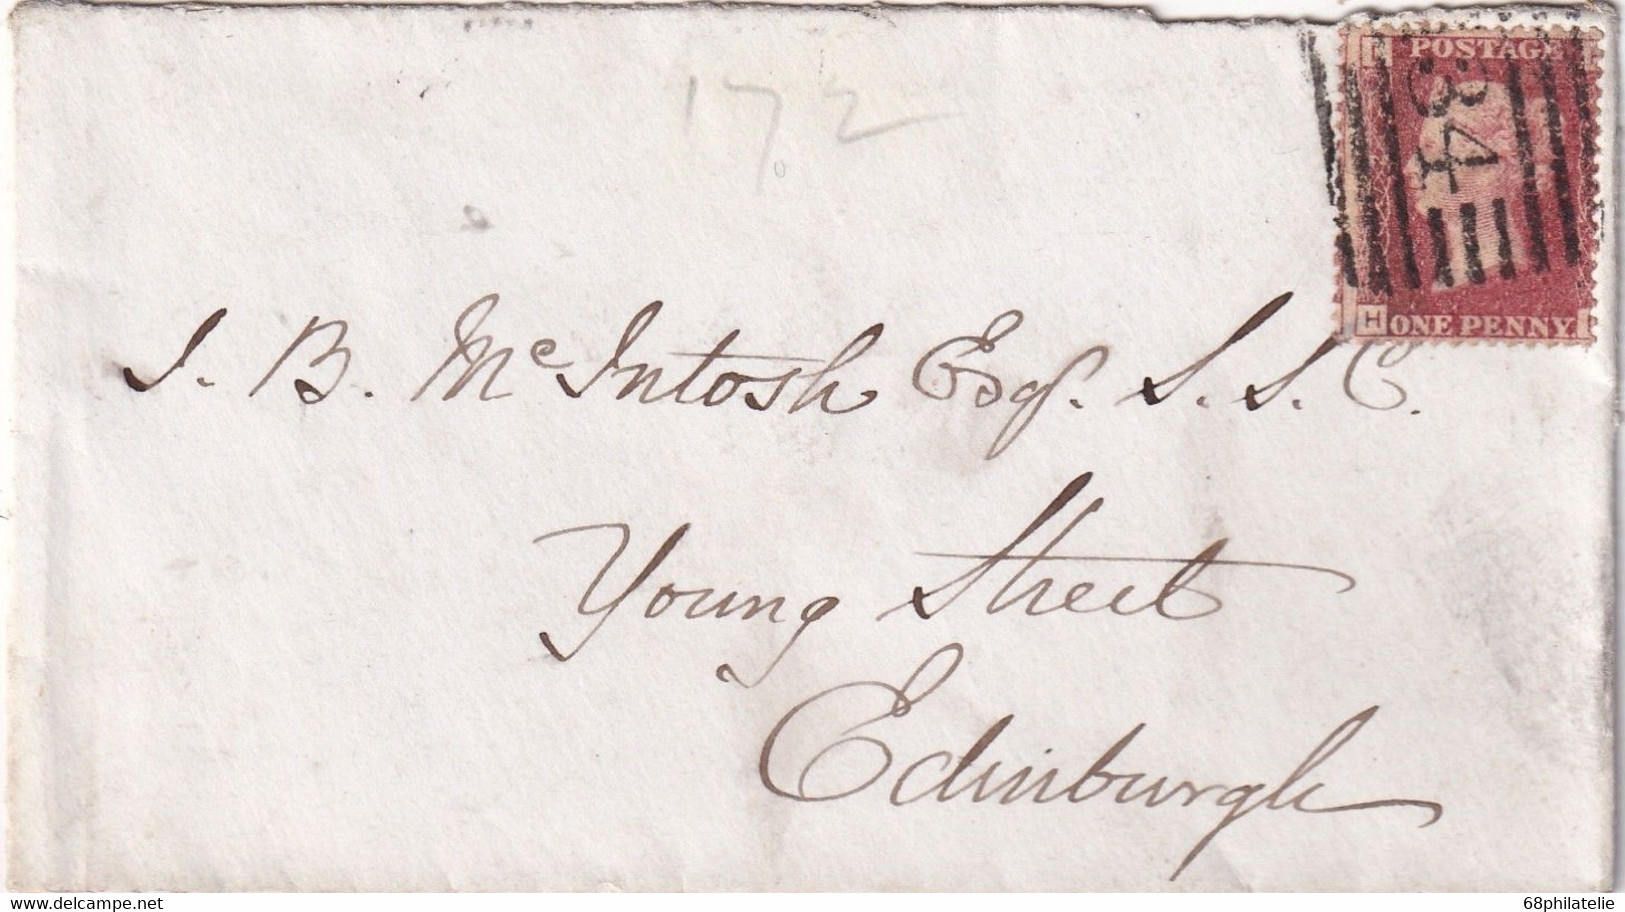 172
POSTAGE
34
H ONE PENNY.
J. B. McIntosh Esq. S. S. C.
Young Street
Edinburgh
www.delcampe.net
68philatelie